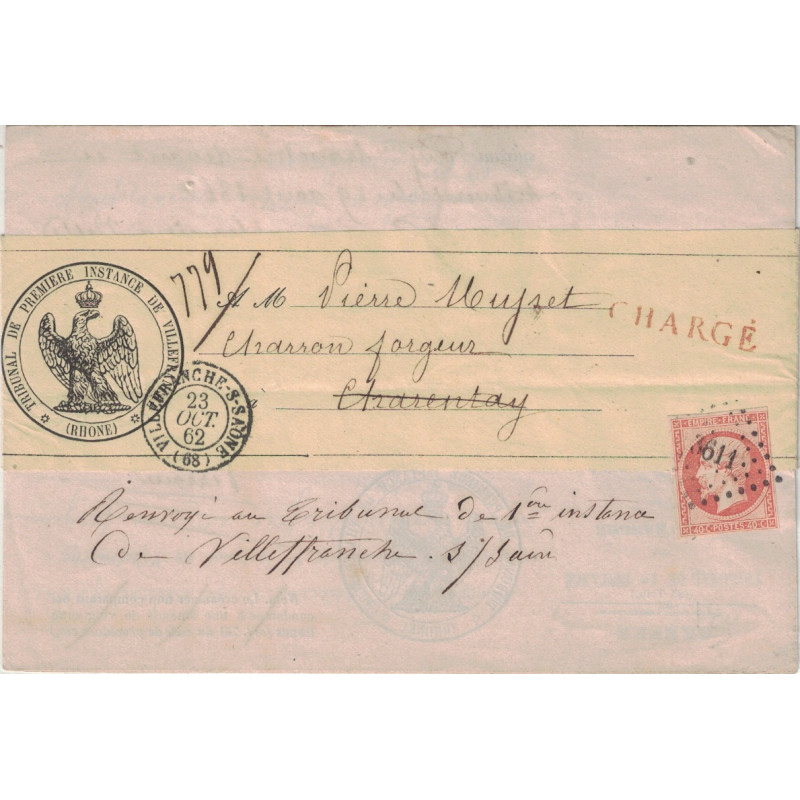 TRIBUNAL DE PREMIERE INSTANCE DE VILLEFR
(RHONE)
779
A M Pierre Muyset
Charron forgeur
à Charentay
CHARGÉ
VILLEFRANCHE-S-SAÔNE
23
OCT.
62
(68)
EMPIRE FRANC
40·C·POSTES·40·C
Renvoyé au Tribunal de 1ère instance
de Villeffranche s/Saône